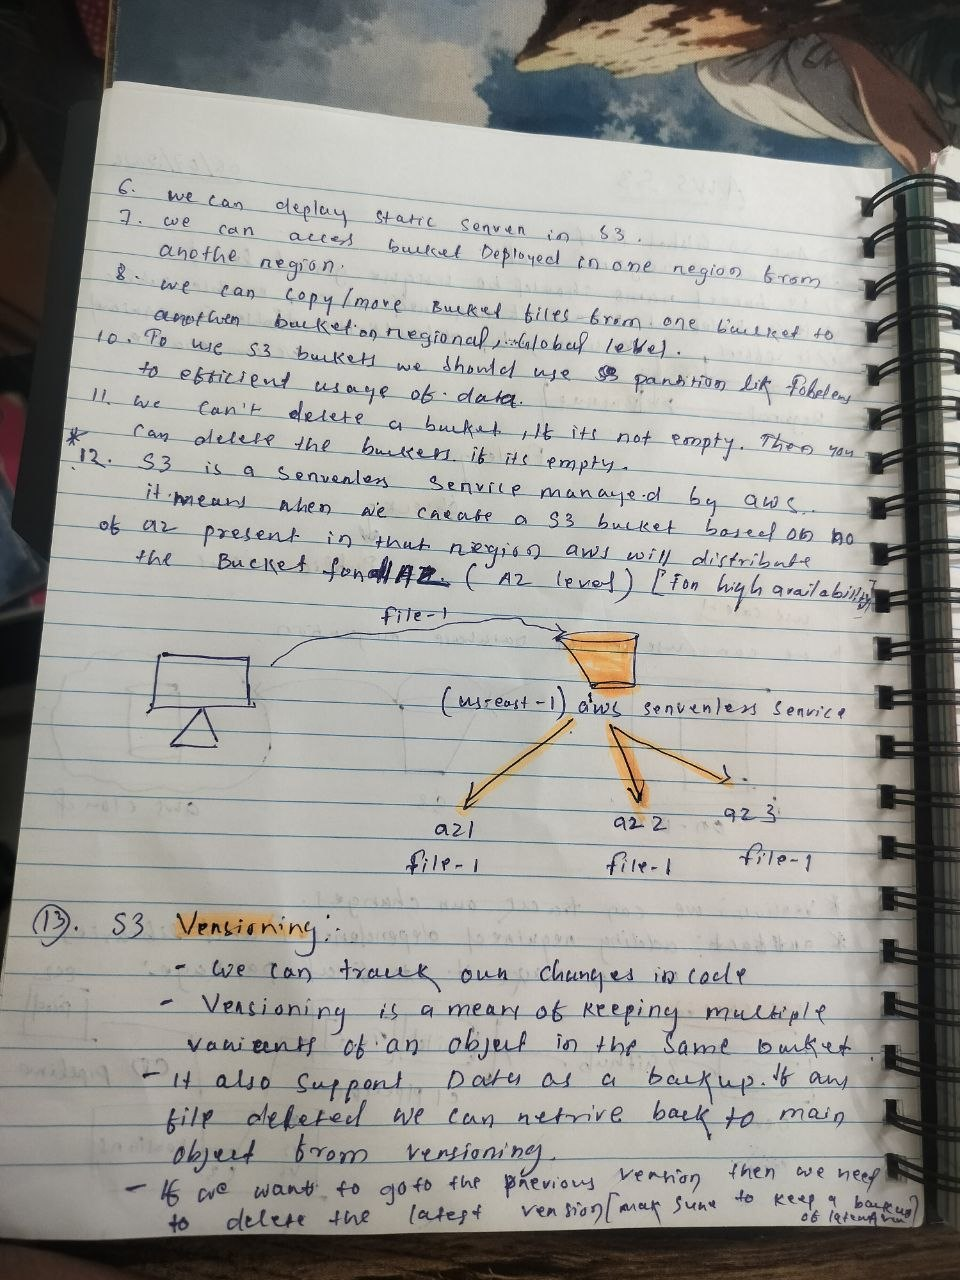 6. we can deplay static server in S3.
7. we can access bucket Deployed in one region from
anothe region.
8. we can copy/move Bucket files from one bucket to
another bucket on regional, Global level.
10. To use S3 buckets we should use partition lik Folders
to efficient usage of data.
11. we can't delete a bucket, If its not empty. Then you
can delete the buckets if its empty.
* 12. S3 is a serverless service managed by aws.
it means when we create a S3 bucket based on no
of az present in that region aws will distribute
the Bucket (AZ level) [For high availability]
file-1
(us-east-1) aws serverless service
az1
az 2
az 3
file-1
file-1
file-1
(13). S3 Versioning:
- we can track our changes in code
- Versioning is a mean of keeping multiple
variants of an object in the same bucket.
- it also support Data as a backup. If any
file deleted we can retrive back to main
object from versioning.
- If we want to go to the previous version then we need
to delete the latest version [mak sure to keep a backup
of latest